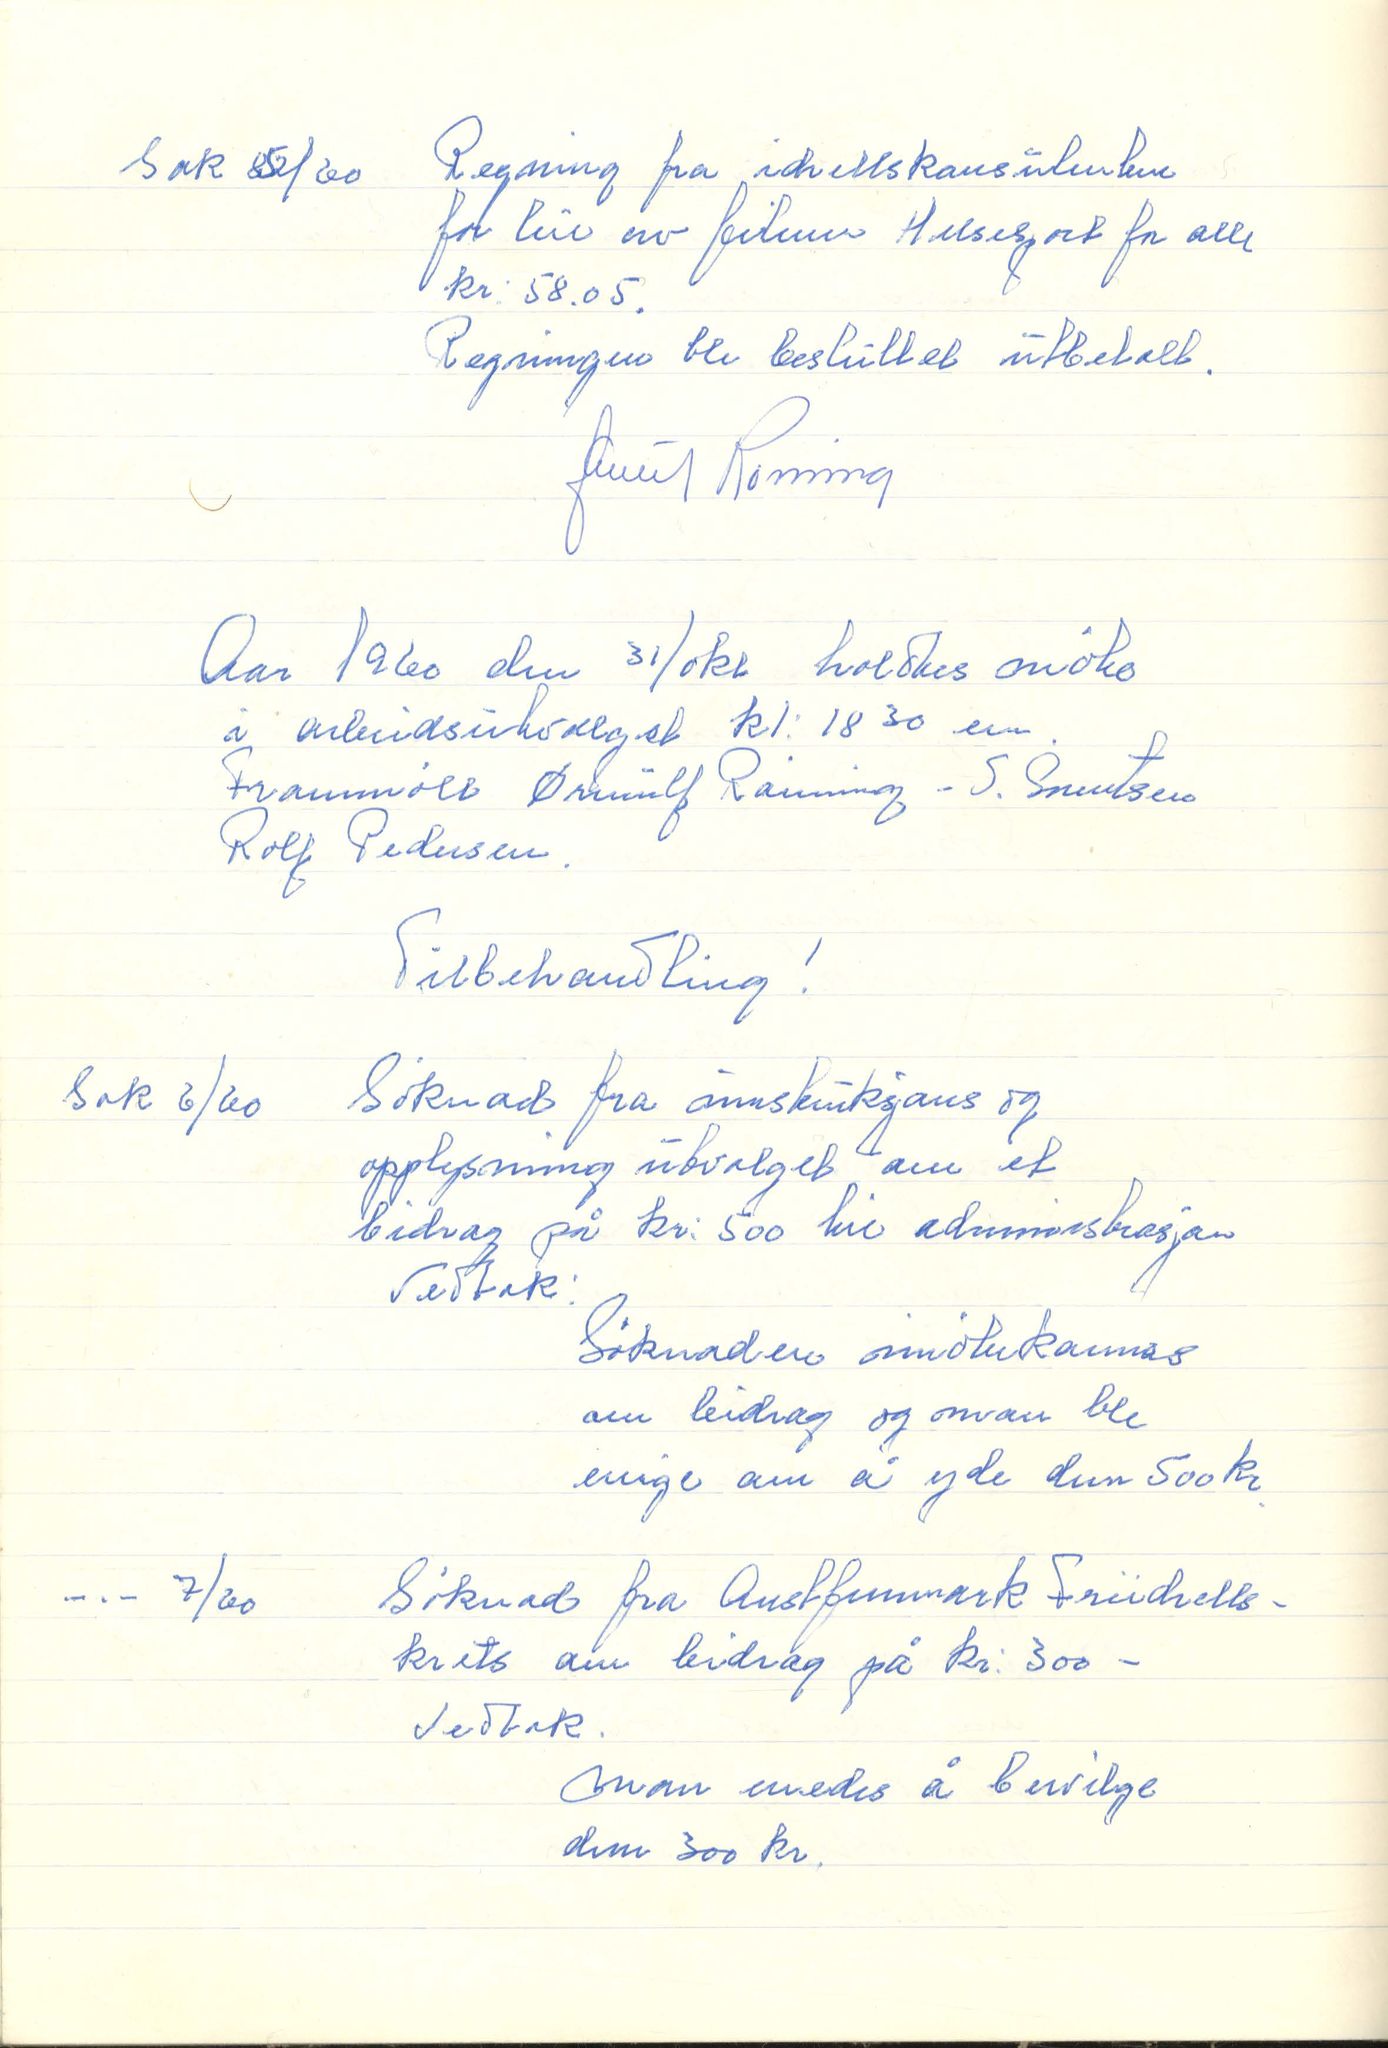 Sak 5/60 Regning fra idrettskonsulenten
for leie av filmen Helsesport for alle
kr: 58.05.
Regningen ble besluttet utbetalt.
Roning
Aar 1960 den 31/okt holdtes möte
i arbeidsutvalget kl: 18 30 em.
Frammött Ørnulf Rönning - S. Snertsen
Rolf Pedersen.
Tilbehandling!
Sak 6/60 Söknad fra innstruksjons og
opplysning utvalget om et
bidrag på kr: 500 til adminnistrasjon
Vedtak:
Söknaden imötekommes
om bidrag og man ble
enige om å yde dem 500 kr.
--- 7/60 Söknad fra Austfinnmark Friidretts-
krets om bidrag på kr: 300 -
Vedtak.
Man enedes å bevilge
dem 300 kr.